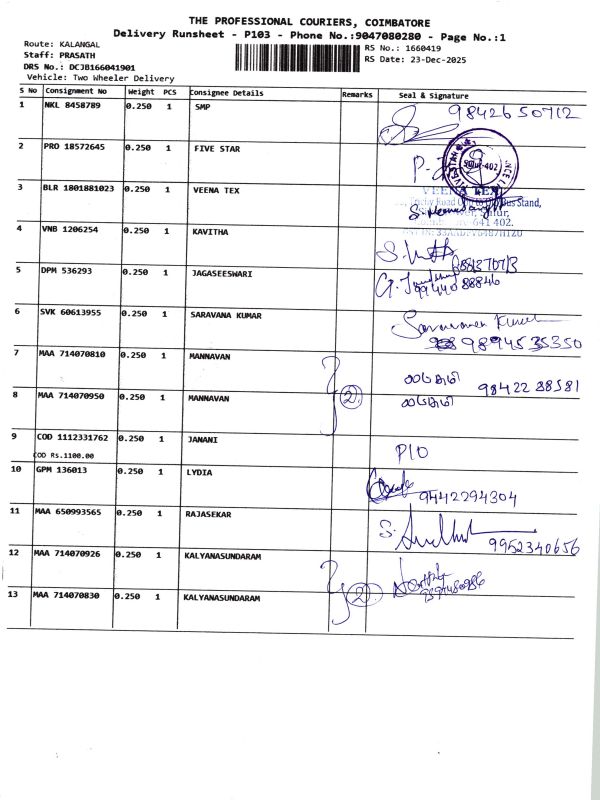 THE PROFESSIONAL COURIERS, COIMBATORE
Delivery Runsheet - P103 - Phone No.:9047080280 - Page No.:1
Route: KALANGAL
RS No.: 1660419
Staff: PRASATH
RS Date: 23-Dec-2025
DRS No.: DCJB166041901
Vehicle: Two Wheeler Delivery
S No Consignment No Weight PCS Consignee Details Remarks Seal & Signature
1 NKL 8458789 0.250 1 SMP 9842650712
2 PRO 18572645 0.250 1 FIVE STAR
3 BLR 1801881023 0.250 1 VEENA TEX VEENA TEX
Bus Stand,
641 402.
4 VNB 1206254 0.250 1 KAVITHA
5 DPM 536293 0.250 1 JAGASEESWARI 9944088846
6 SVK 60613955 0.250 1 SARAVANA KUMAR Saravana Kumar
9894535350
7 MAA 714070810 0.250 1 MANNAVAN
8 MAA 714070950 0.250 1 MANNAVAN 2 98422 88581
9 COD 1112331762 0.250 1 JANANI P/O
COD Rs.1100.00
10 GPM 136013 0.250 1 LYDIA 9442294304
11 MAA 650993565 0.250 1 RAJASEKAR S. 9952340656
12 MAA 714070926 0.250 1 KALYANASUNDARAM
13 MAA 714070830 0.250 1 KALYANASUNDARAM 2